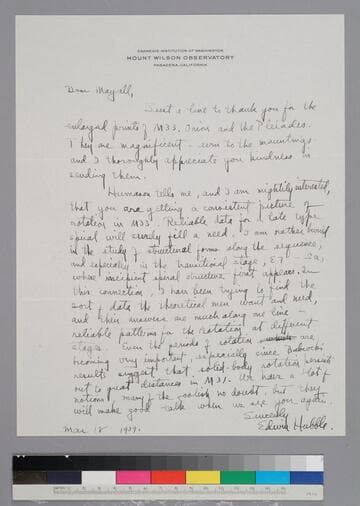 CARNEGIE INSTITUTION OF WASHINGTON
MOUNT WILSON OBSERVATORY
PASADENA, CALIFORNIA
Dear Mayall,
Just a line to thank you for the
enlarged prints of M33, Orion and the Pleiades.
They are magnificent - even to the mountings -
and I thoroughly appreciate your kindness in
sending them.
Humason tells me, and I am mightily interested,
that you are getting a consistent picture of
rotation in M33. Reliable data for a late type
spiral will surely fill a need. I am rather buried
in the study of structural forms along the sequence,
and especially in the transitional stage, E7 - Sa,
where incipient spiral structure first appears. In
this connection, I have been trying to find the
sort of data the theoretical men want and need,
and their answers are much along one line -
reliable patterns for the rotation at different
stages. Even the periods of rotation are
becoming very important, especially since Babcock's
results suggest that solid-body rotation persists
out to great distances in M31. We have a lot of
notions, many of them foolish no doubt, but they
will make good talk when we see you again.
Sincerely
Edwin Hubble.
Mar. 18 1939.